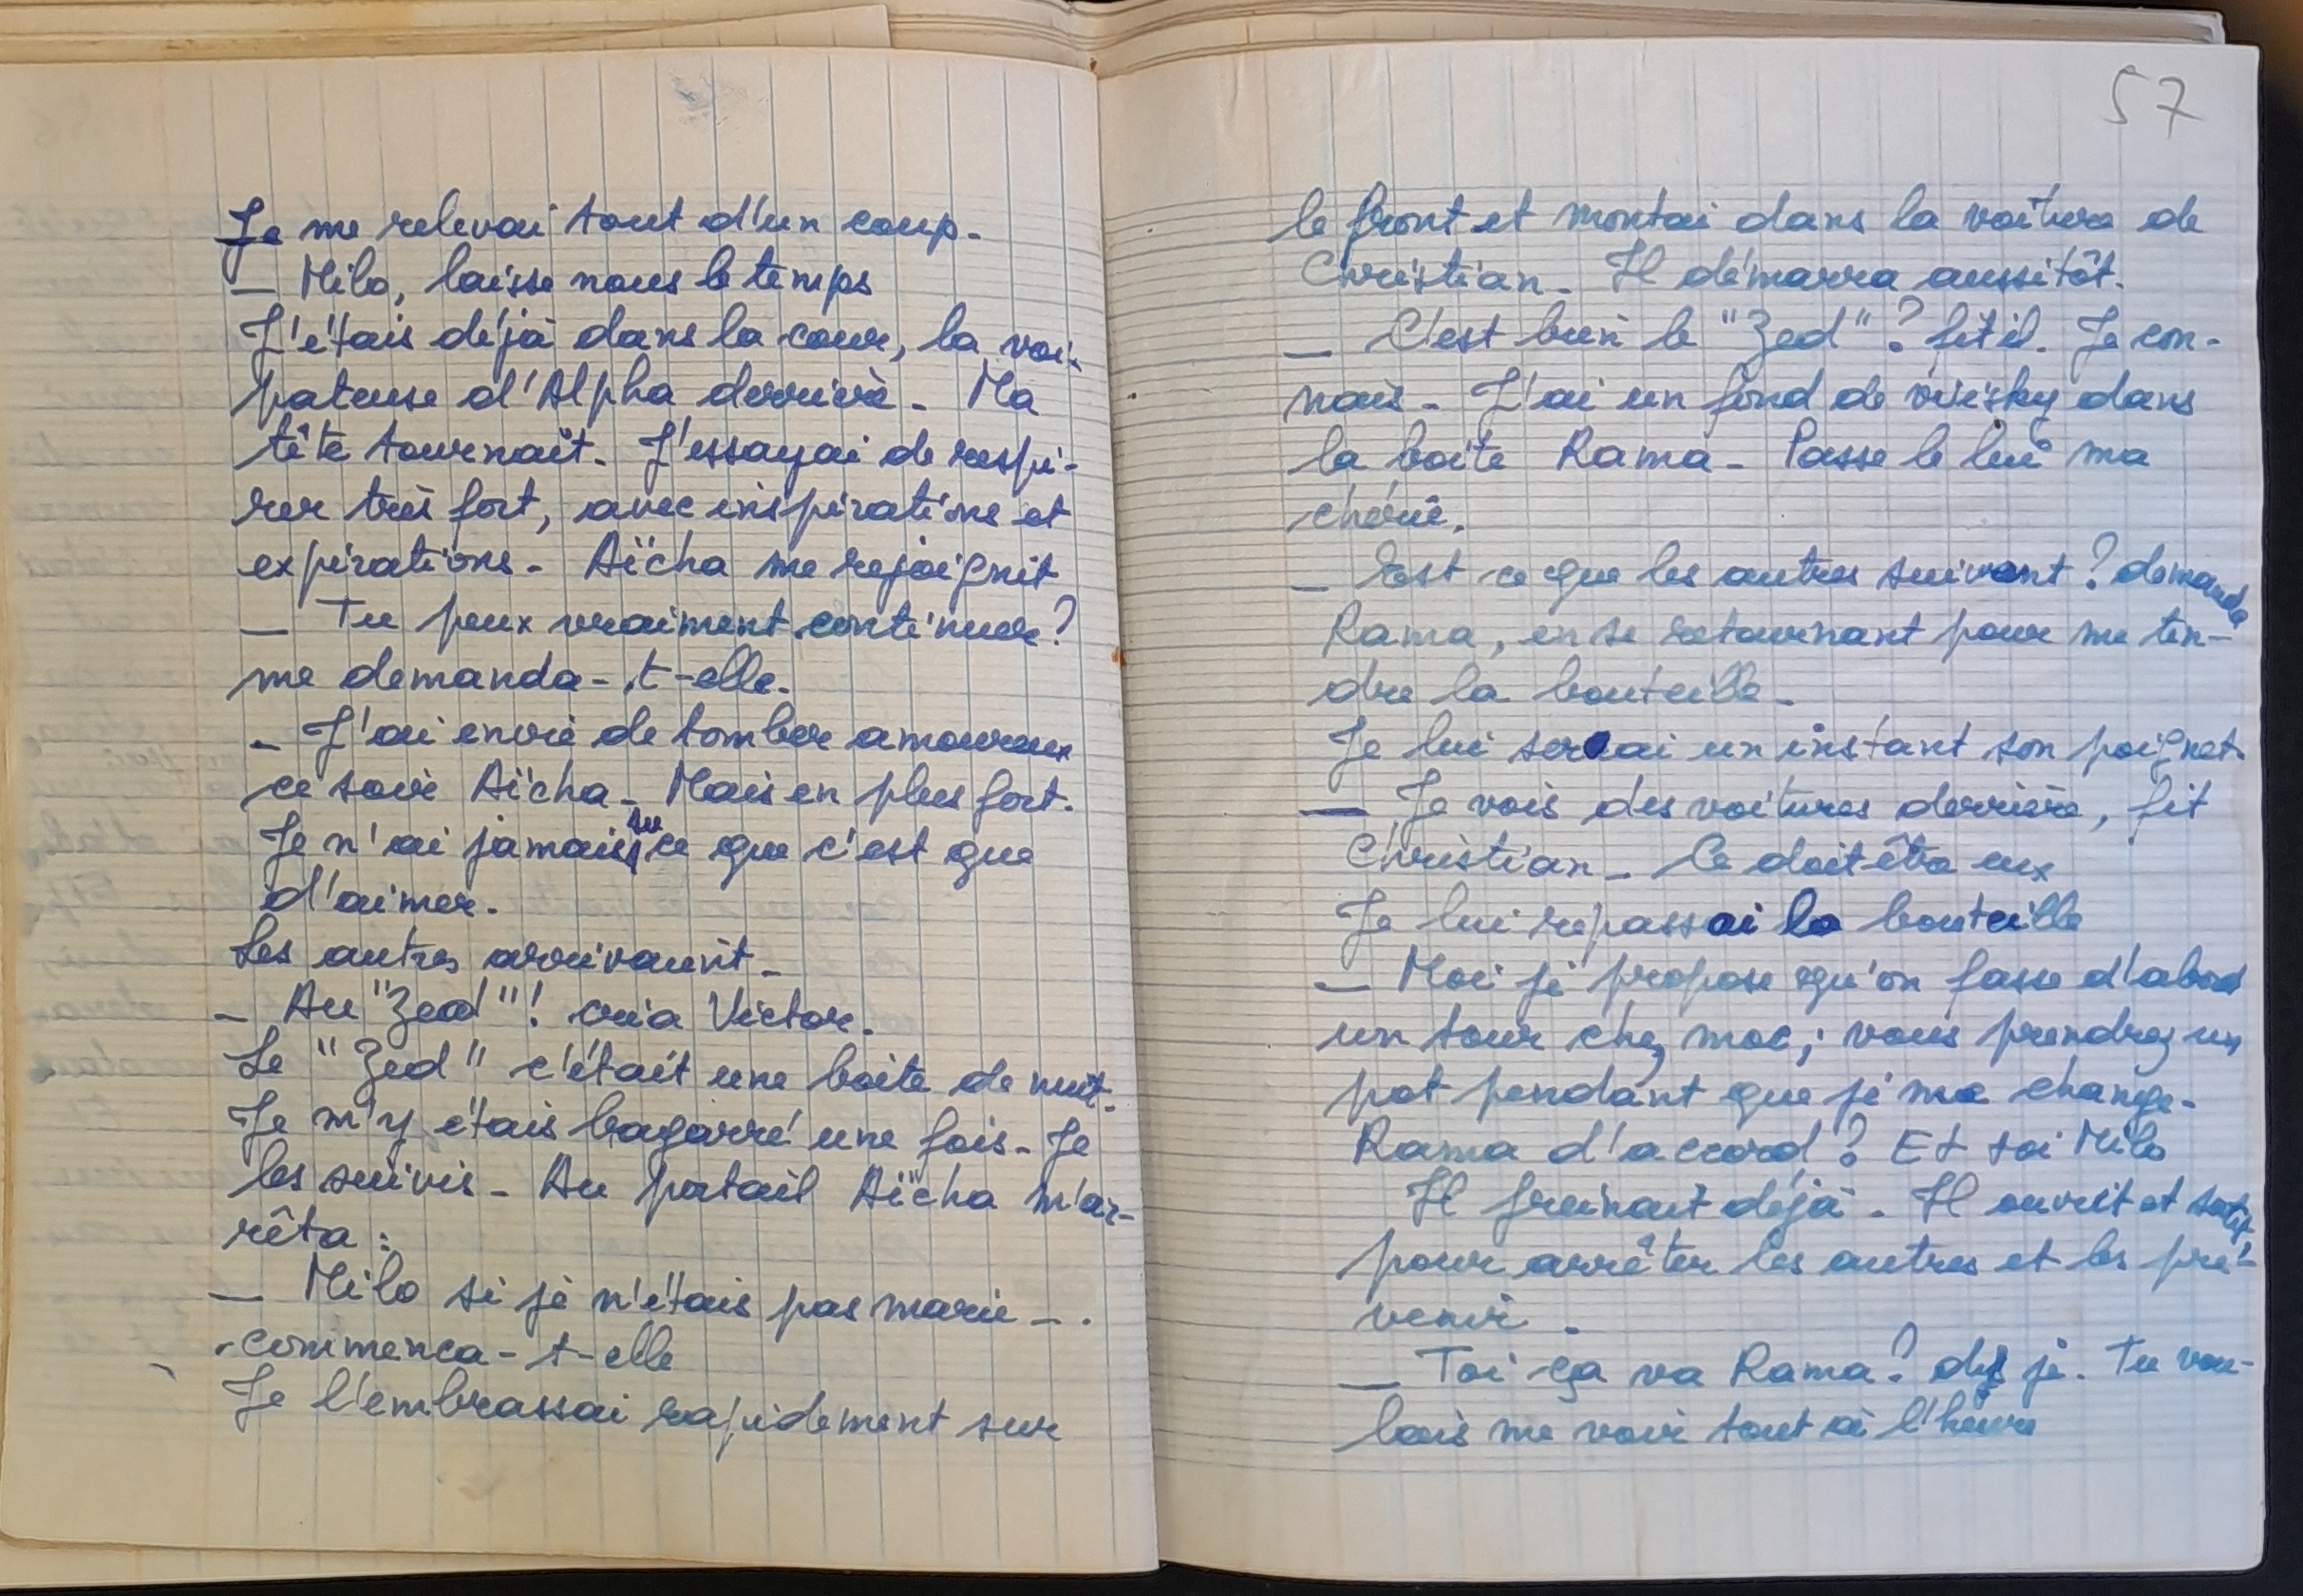 Je me relevai tout d'un coup.
— Milo, laisse nous le temps
J'étais déjà dans la cour, la voix
pateuse d'Alpha derrière. Ma
tête tournait. J'essayai de respi-
rer très fort, avec inspirations et
expirations. Aïcha me rejoignit
— Tu peux vraiment continuer ?
me demanda-t-elle.
— J'ai envie de tomber amoureux
ce soir Aïcha. Mais en plus fort.
Je n'ai jamais su ce que c'est que
d'aimer.
Les autres arrivaient.
— Au "Zed" ! cria Victor.
Le "Zed" c'était une boite de nuit.
Je m'y étais bagarré une fois. Je
les suivis. Au portail Aïcha m'ar-
rêta :
— Milo si je n'étais pas marié — .
commença-t-elle
Je l'embrassai rapidement sur
57
le front et montai dans la voiture de
Christian. Il démarra aussitôt.
— C'est bien le "Zed" ? fit il. Je con-
nais. J'ai un fond de wisky dans
la boite Rama. Passe le lui ma
chérie.
— Est ce que les autres suivent ? demanda
Rama, en se retournant pour me ten-
dre la bouteille.
Je lui serrai un instant son poignet.
— Je vois des voitures derrière, fit
Christian. Ce doit être eux
Je lui repassai la bouteille
— Moi je propose qu'on fasse d'abord
un tour chez moi ; vous prendrez un
pot pendant que je me change.
Rama d'accord ? Et toi Milo
Il freinait déjà. Il ouvrit et sortit
pour arrêter les autres et les pré-
venir.
— Toi ça va Rama ? dis je. Tu vou-
lais me voir tout à l'heure